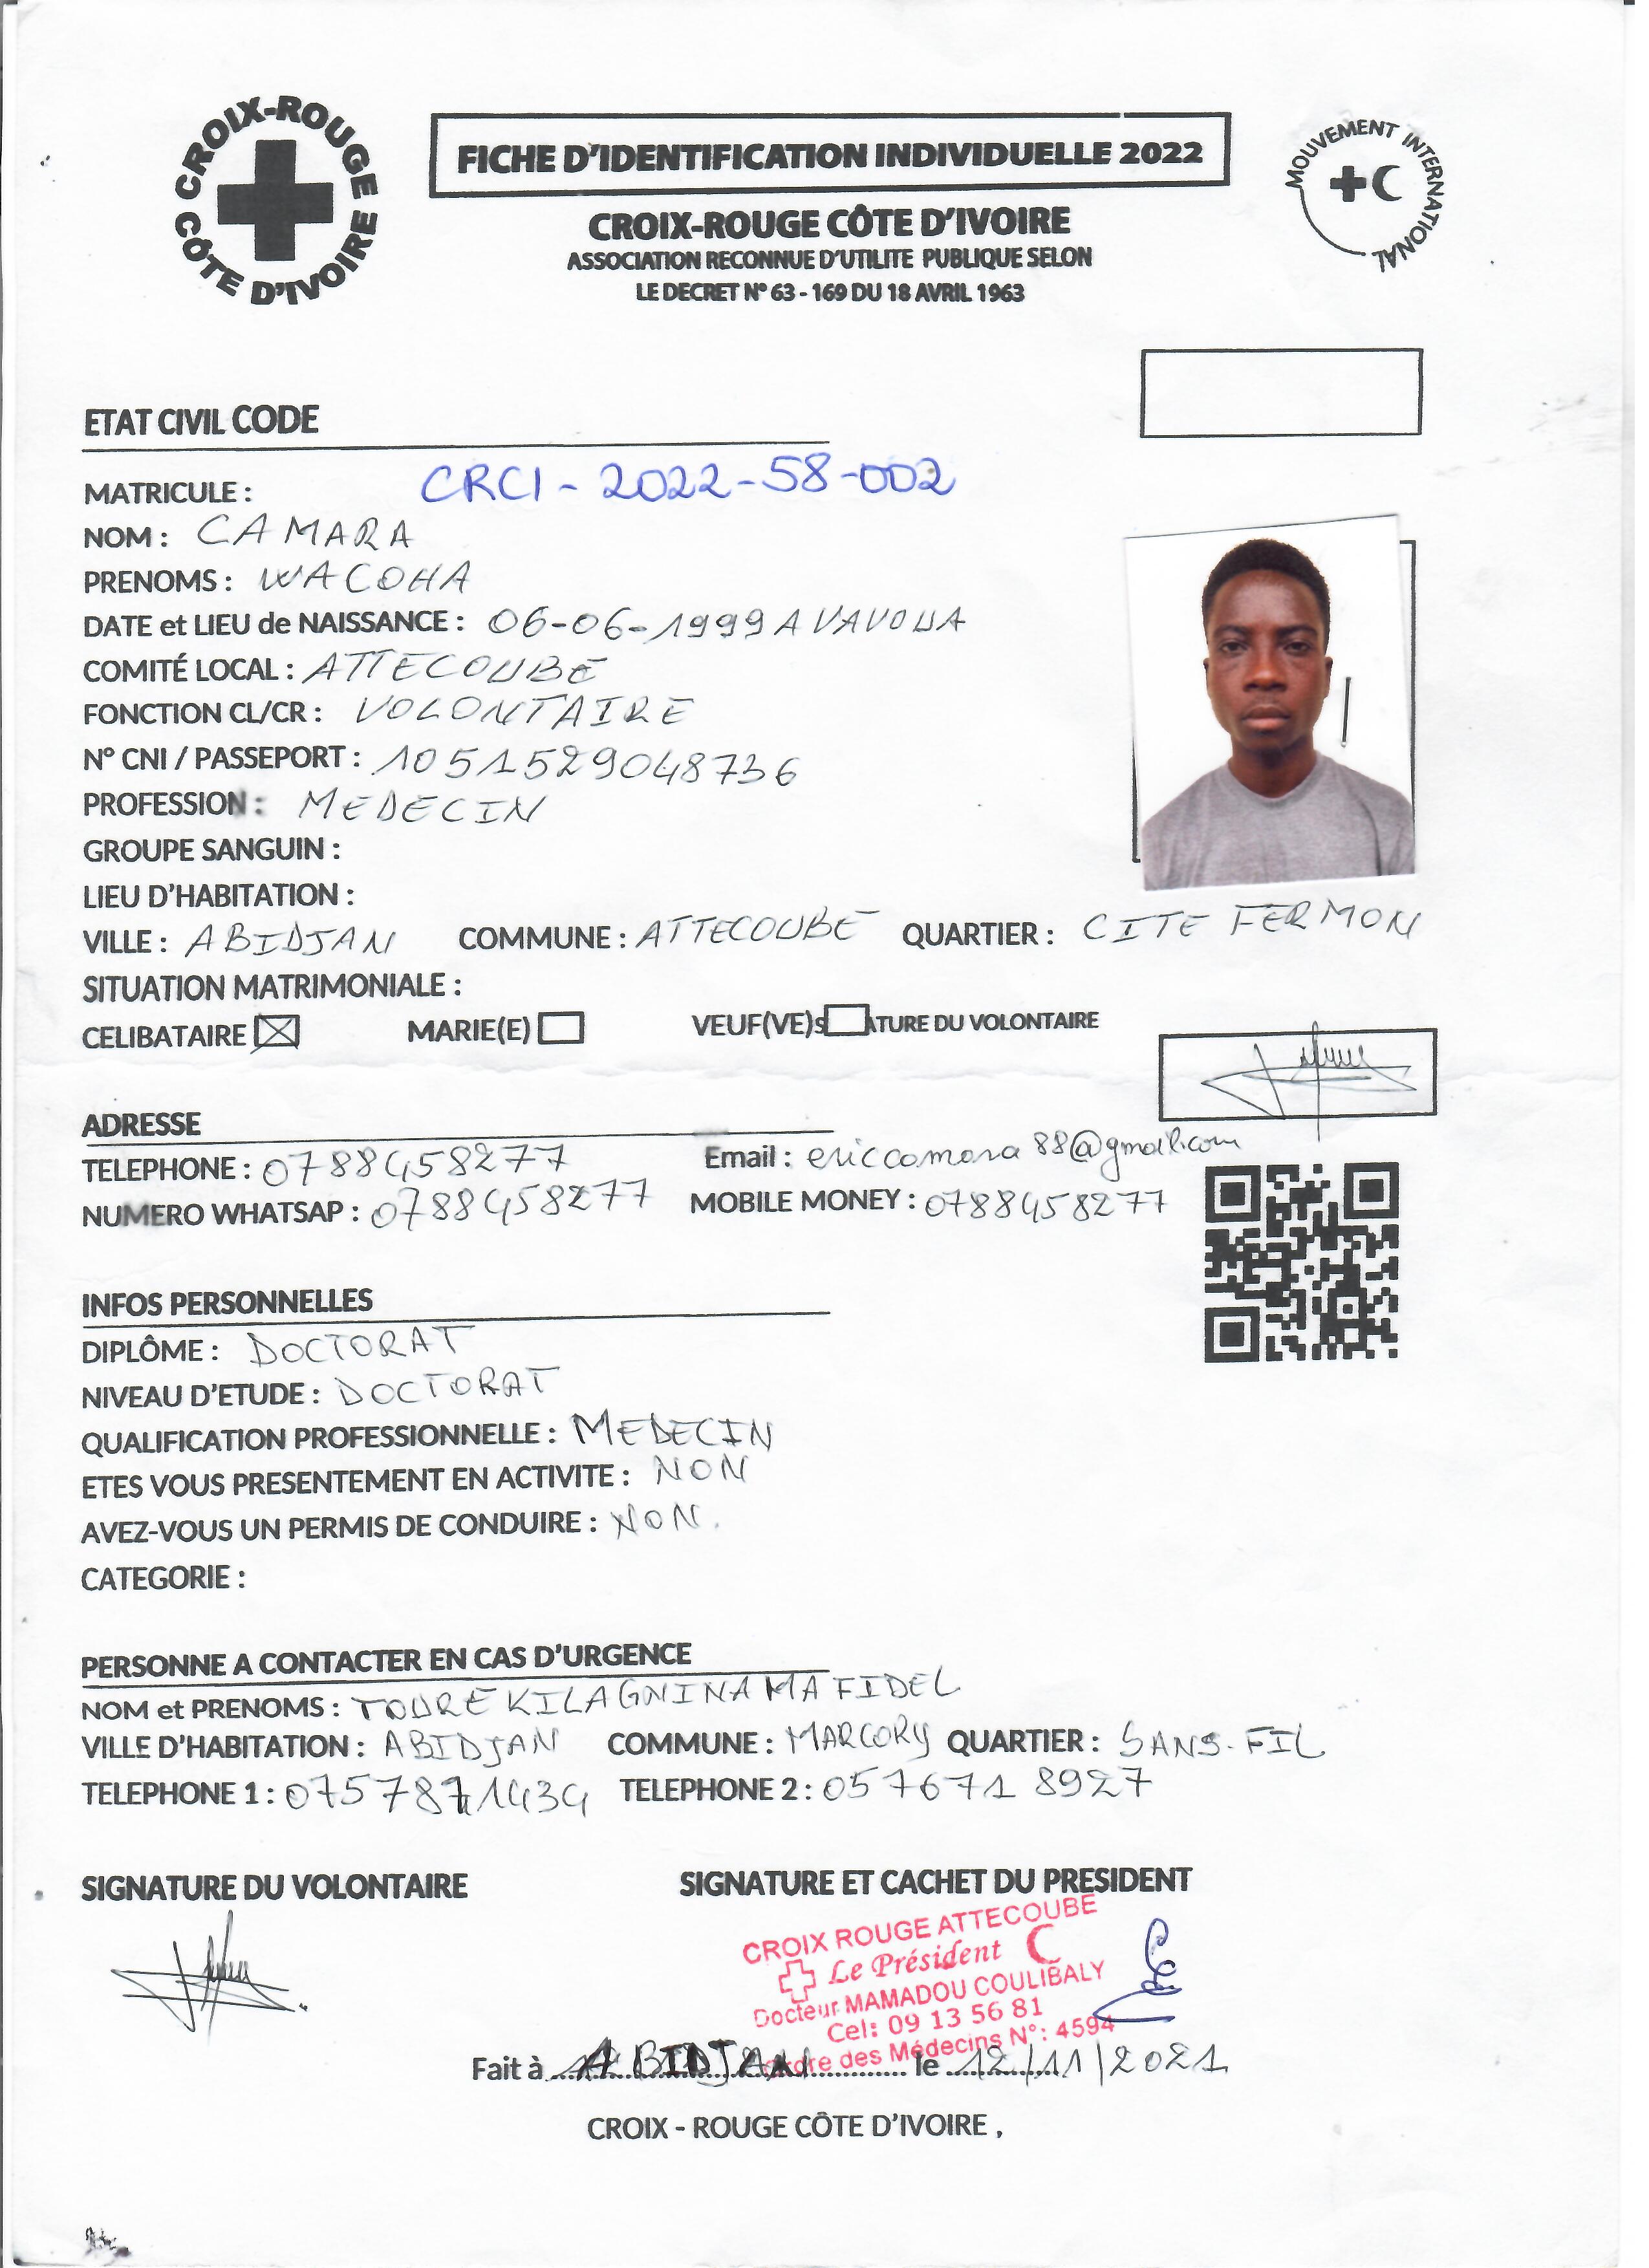 CROIX-ROUGE CÔTE D'IVOIRE
FICHE D'IDENTIFICATION INDIVIDUELLE 2022
MOUVEMENT INTERNATIONAL
CROIX-ROUGE CÔTE D'IVOIRE
ASSOCIATION RECONNUE D'UTILITE PUBLIQUE SELON
LE DECRET N° 63 - 169 DU 18 AVRIL 1963
ETAT CIVIL CODE
MATRICULE : CRCI - 2022-58-002
NOM : CAMARA
PRENOMS : WACOHA
DATE et LIEU de NAISSANCE : 06-06-1999 A VAVOUA
COMITÉ LOCAL : ATTECOUBE
FONCTION CL/CR : VOLONTAIRE
N° CNI / PASSEPORT : 1051529048736
PROFESSION : MEDECIN
GROUPE SANGUIN :
LIEU D'HABITATION :
VILLE : ABIDJAN COMMUNE : ATTECOUBE QUARTIER : CITE FERMON
SITUATION MATRIMONIALE :
CELIBATAIRE MARIE(E) VEUF(VE) ATURE DU VOLONTAIRE
ADRESSE
TELEPHONE : 0788458277 Email : ericcamara88@gmail.com
NUMERO WHATSAP : 0788458277 MOBILE MONEY : 0788458277
INFOS PERSONNELLES
DIPLÔME : DOCTORAT
NIVEAU D'ETUDE : DOCTORAT
QUALIFICATION PROFESSIONNELLE : MEDECIN
ETES VOUS PRESENTEMENT EN ACTIVITE : NON
AVEZ-VOUS UN PERMIS DE CONDUIRE : NON.
CATEGORIE :
PERSONNE A CONTACTER EN CAS D'URGENCE
NOM et PRENOMS : TOURE KILAGNINAMA FIDEL
VILLE D'HABITATION : ABIDJAN COMMUNE : MARCORY QUARTIER : SANS-FIL
TELEPHONE 1 : TELEPHONE 2 : 0576718927
SIGNATURE DU VOLONTAIRE SIGNATURE ET CACHET DU PRESIDENT
CROIX ROUGE ATTECOUBE
Le Président
Docteur MAMADOU COULIBALY
Cel: 09 13 56 81
Ordre des Médecins N°: 4594
Fait à ABIDJAN le 12/11/2021
CROIX - ROUGE CÔTE D'IVOIRE ,